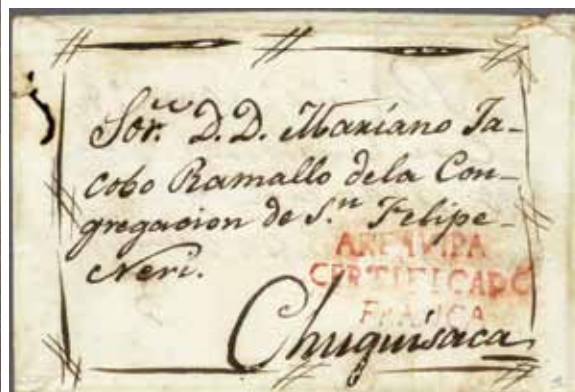 Sor. D. D. Mariano Ja-
cobo Ramallo dela Con-
gregacion de S.n Felipe
Neri.
AREQUIPA
CERTIFICADO
FRANCA
Chuquisaca